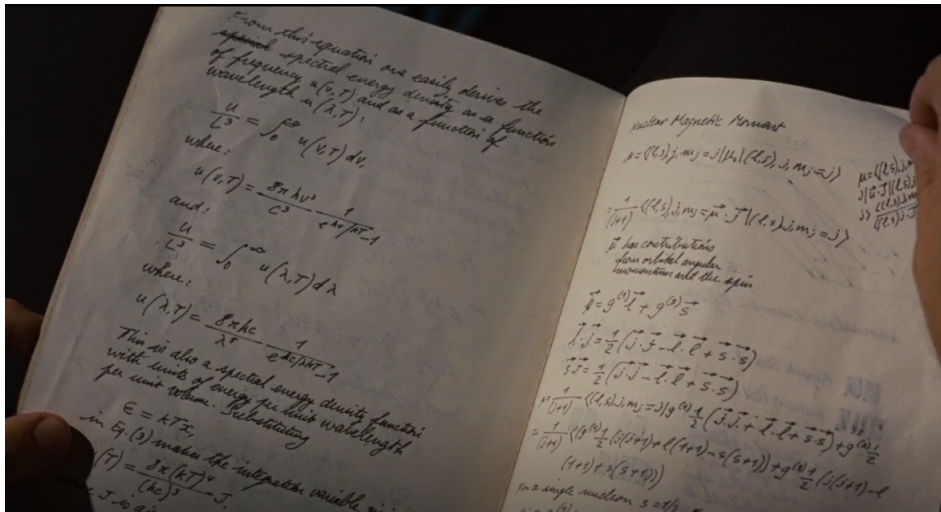 From this equation one easily derives the
special spectral energy density as a function
of frequency u(ν,T) and as a function of
wavelength u(λ,T):
u/L³ = ∫₀^∞ u(ν,T)dν,
where:
u(ν,T) = 8πhν³/c³ 1/e^hν/kT-1
and:
u/L³ = ∫₀^∞ u(λ,T)dλ
where:
u(λ,T) = 8πhc/λ⁵ 1/e^hc/λkT-1
This is also a spectral energy density function
with units of energy per unit wavelength
per unit volume. Substituting
ε = kTx,
in Eq.(3) makes the integration variable
(T) = 8π(kT)⁴/(hc)³ J,
J is
Nuclear Magnetic Moment
μ = ⟨(l,s),j,mj=j|μz|(l,s),j,mj=j⟩
= 1/(j+1) ⟨(l,s),j,mj=μ⃗·J⃗|(l,s),j,mj=j⟩
μ⃗ has contributions
from orbital angular
momentum and the spin
μ⃗ = g⁽ˡ⁾l⃗ + g⁽ˢ⁾s⃗
l⃗·j⃗ = 1/2(j⃗·j⃗ - l⃗·l⃗ + s⃗·s⃗)
s⃗·j⃗ = 1/2(j⃗·j⃗ - l⃗·l⃗ + s⃗·s⃗)
1/(j+1) ⟨(l,s),j,mj=j|g⁽ˡ⁾1/2(j⃗·j⃗ + l⃗·l⃗ + s⃗·s⃗) + g⁽ˢ⁾1/2
= 1/(j+1) (g⁽ˡ⁾1/2(j(j+1)+l(l+1)-s(s+1)) + g⁽ˢ⁾1/2(j(j+1)-l
(l+1)+s(s+1)))
For a single nucleon s=1/2